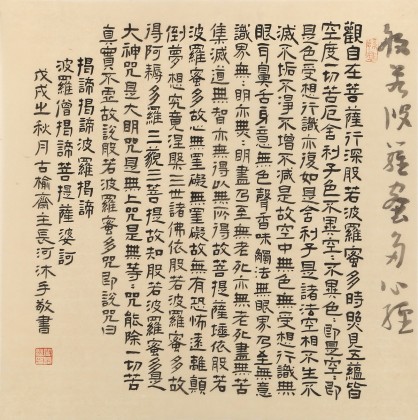 般若波羅蜜多心經
觀自在菩薩行深般若波羅蜜多時照見五蘊皆
空度一切苦厄舍利子色不異空々不異色々即是空々即
是色受想行識亦復如是舍利子是諸法空相不生不
滅不垢不淨不增不減是故空中無色無受想行識無
眼耳鼻舌身意無色聲香味觸法無眼界乃至無意
識界無々明亦無々明盡乃至無老死亦無老死盡無苦
集滅道無智亦無得以無所得故菩提薩埵依般若
波羅蜜多故心無罣礙無罣礙故無有恐怖遠離顛
倒夢想究竟涅槃三世諸佛依般若波羅蜜多故
得阿耨多羅三藐三菩提故知般若波羅蜜多是
大神咒是大明咒是無上咒是無等々咒能除一切苦
真實不虛故說般若波羅蜜多咒即說咒曰
揭諦揭諦波羅揭諦
波羅僧揭諦菩提薩婆訶
戊戌之秋月古榆齋主長河沐手敬書